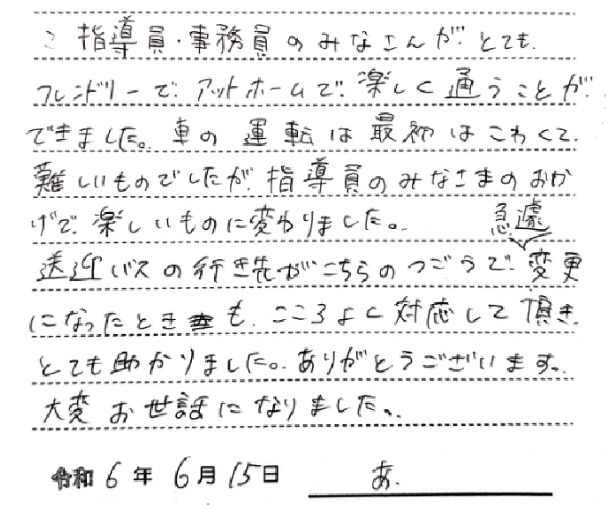 ご指導員・事務員のみなさんが、とても、
フレンドリーで、アットホームで、楽しく通うことが
できました。車の運転は最初はこわくて、
難しいものでしたが、指導員のみなさまのおか
げで、楽しいものに変わりました。
急遽
送迎バスの行き先がこちらのつごうで、変更
になったときも、こころよく対応して頂き、
とても助かりました。ありがとうございます。
大変お世話になりました。
令和6年6月15日 あ.